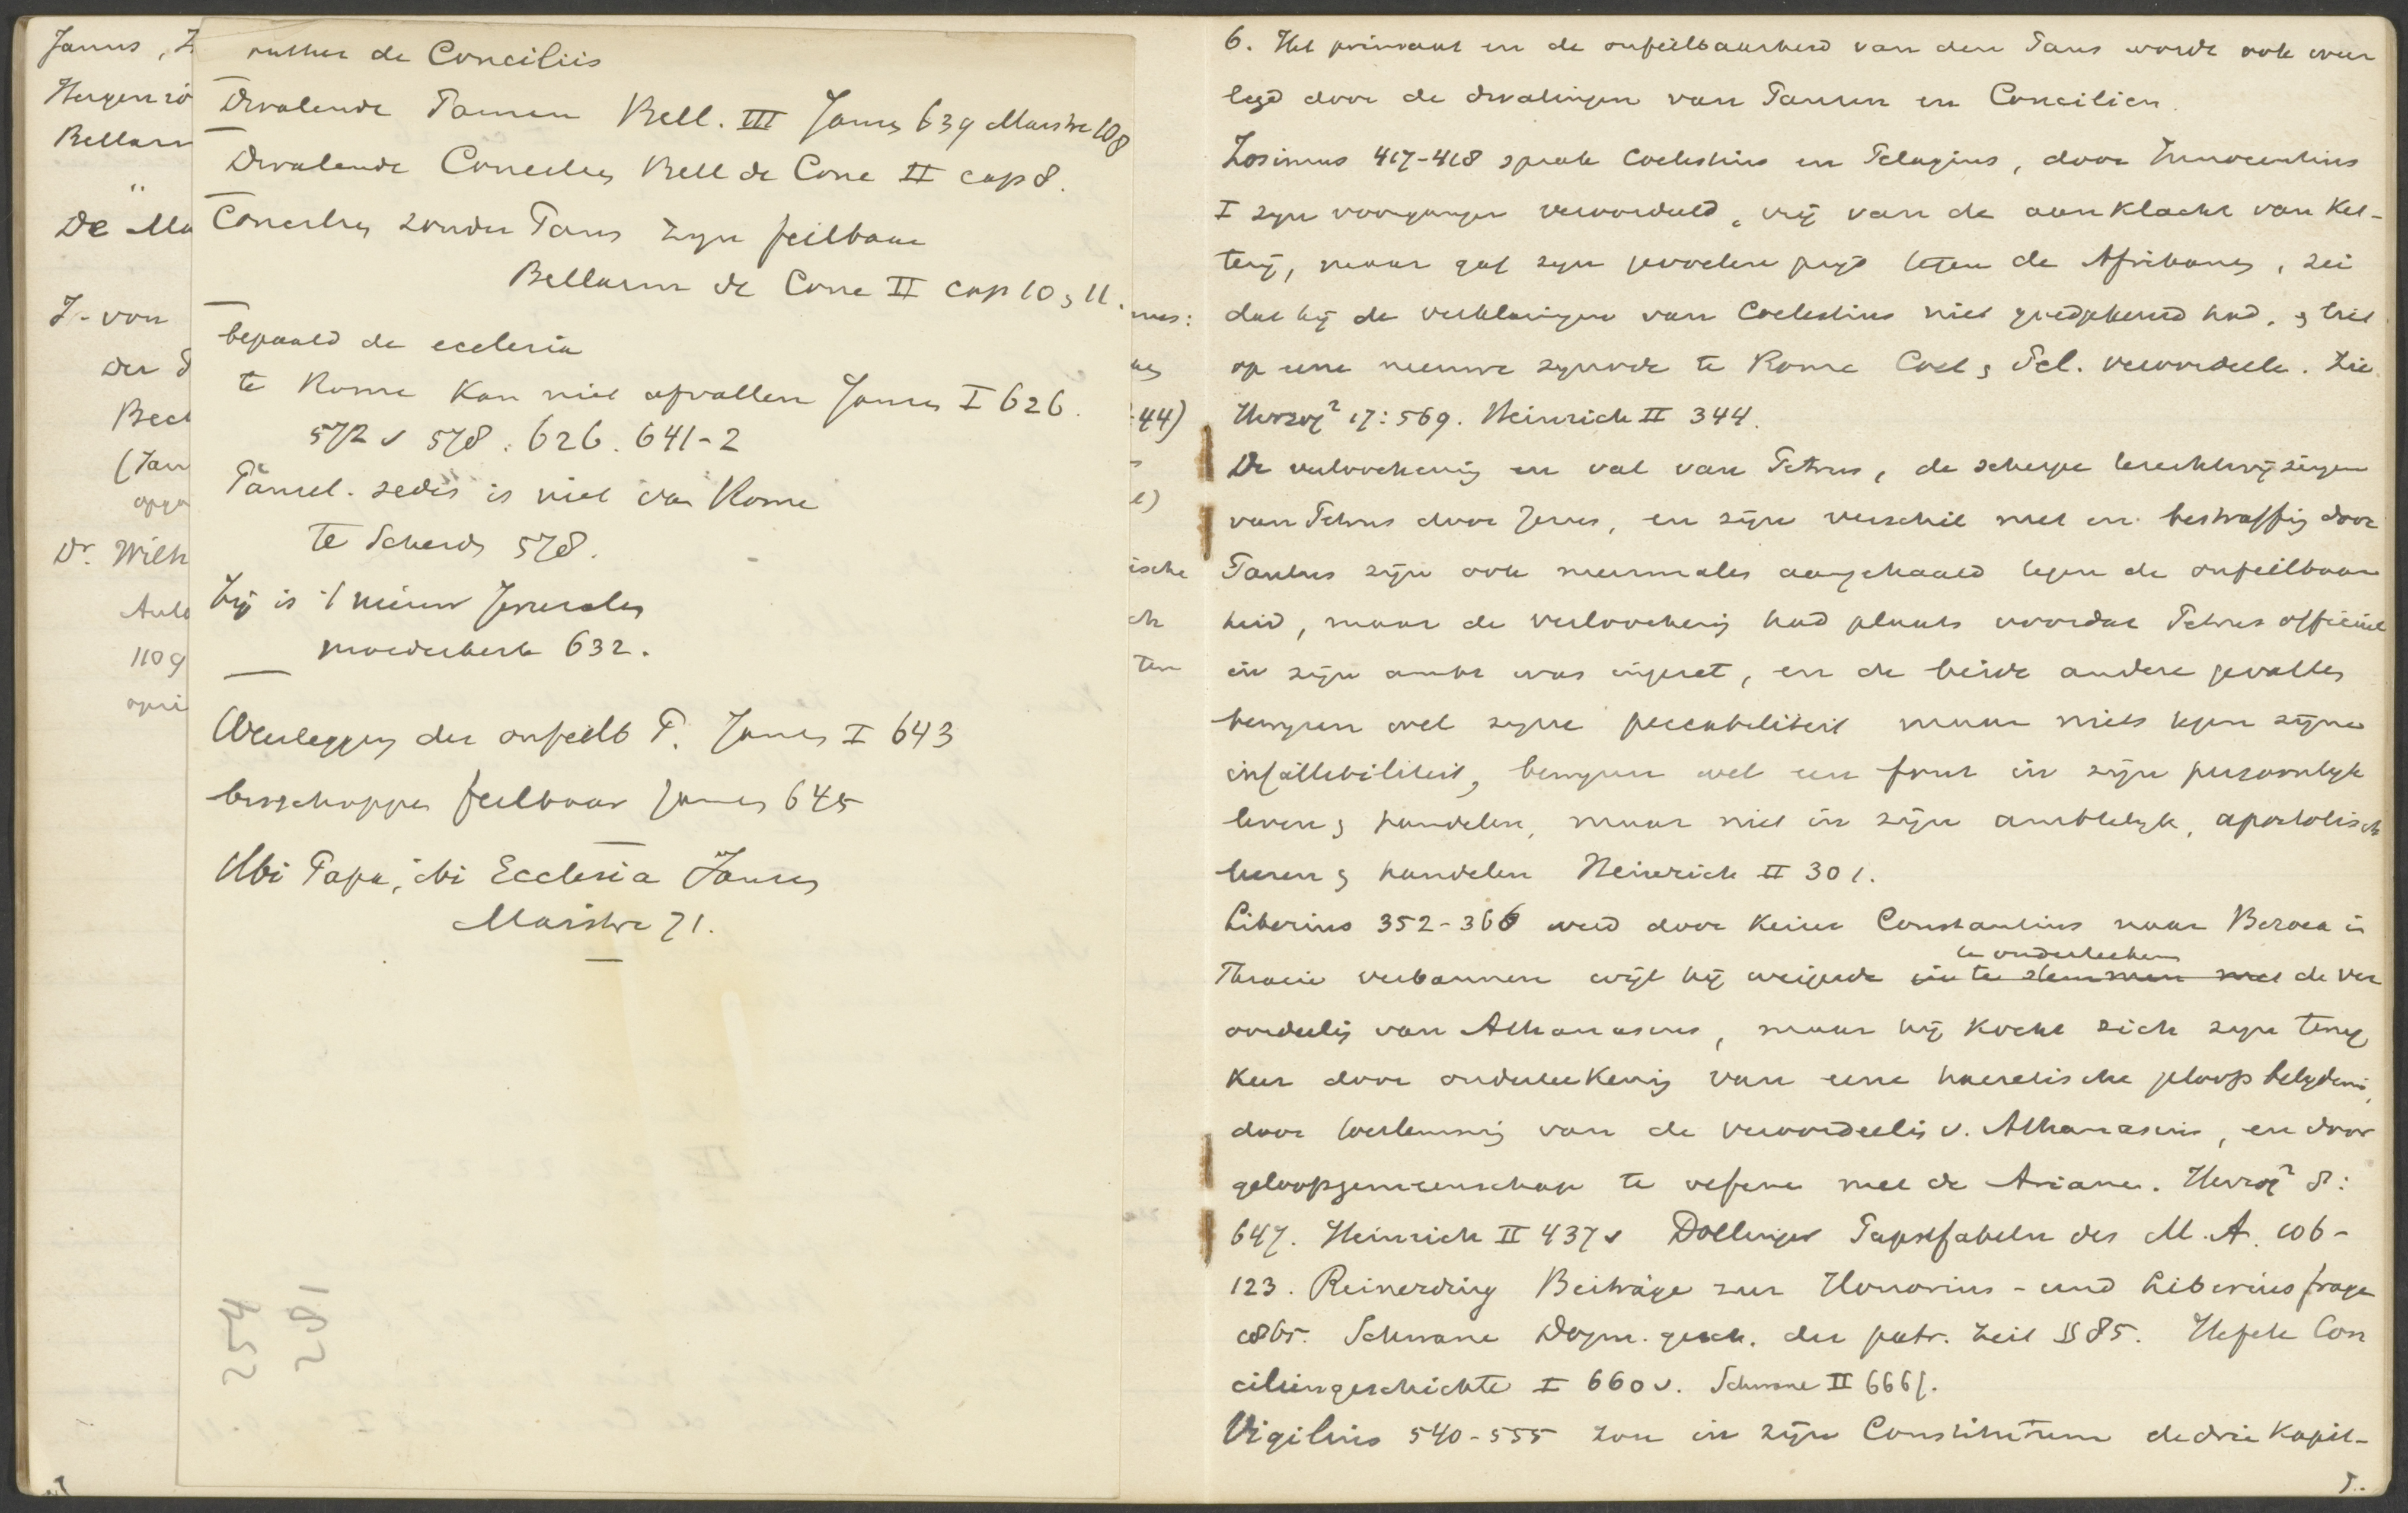 Janus, Z
Hergenrö
Bellarm
"
De Ma
J. von
der P
Bect
(Jan
opga
Dr. Wilh
Aule
1109
opri
Luther de Conciliis
Dwalende Pausen Bell. III Janus 639 Maistre 108
Dwalende Concilies Bell de Conc II cap 8.
Concilies zonder Paus zijn feilbaar
Bellarm de Conc II cap 10 & 11.
bepaald de ecclesia
te Rome kan niet afvallen Jansen I 626.
572 v 578. 626. 641-2
Pausel. sedes is niet van Rome
te Scheids 578.
Zij is 't nieuw Jerusalem
moederkerk 632.
Weerlegging der onfeilb P. Jansen I 643
bisschoppen feilbaar Jansen 645
Ubi Papa, ibi Ecclesia Jansen
Maistre 71.
254
281
nus:
es
:44)
s
e)
ische
ch
ten
6. Het primaat en de onfeilbaarheid van den Paus wordt ook weer
legd door de dwalingen van Pausen en Concilien.
Zosimus 417-418 sprak Coelestius en Pelagius, door Innocentius
I zijn voorganger veroordeeld, vrij van de aanklacht van ket-
terij, maar gaf zijn gevoelen prijs tegen de Afrikanen, zei
dat hij de verklaringen van Coelestius niet goedgekeurd had, & liet
op eene nieuwe synode te Rome Coel & Pel. veroordeelen. Zie
Herzog² 17:569. Heinrich II 344.
De verloochening en val van Petrus, de scherpe terechtwijzingen
van Petrus door Jezus, en zijn verschil met en bestraffing door
Paulus zijn ook meermalen aangehaald tegen de onfeilbaar
heid, maar de verloochening had plaats voordat Petrus officieel
in zijn ambt was ingezet, en de beide andere gevallen
bewijzen wel zijne peccabiliteit maar niets tegen zijne
infallibiliteit, bewijzen wel een fout in zijn persoonlijk
leven & handelen, maar niet in zijn ambtelijk, apostolisch
leeren & handelen Heinrich II 301.
Liberius 352-366 werd door keizer Constantius naar Beroea in
te onderteekenen
Thracie verbannen wijl hij weigerde in te stemmen met de ver
oordeeling van Athanasius, maar hij kocht zich zijn terug
keer door onderteekening van eene haeretische geloofsbelijdenis,
door toestemming van de veroordeeling v. Athanasius, en door
geloofsgemeenschap te oefenen met de Arianen. Herzog² 8:
647. Heinrich II 437 v Dollinger Papstfabeln des M.A. 106-
123. Reinerding Beiträge zur Honorius- und Liberiusfrage
1865. Schwane Dogm. gesch. der patr. Zeit §§ 85. Hefele Con
ciliengeschichte I 660 v. Schwane II 666f.
Vigilius 540-555 zou in zijn Constitutum de drie Kapit-